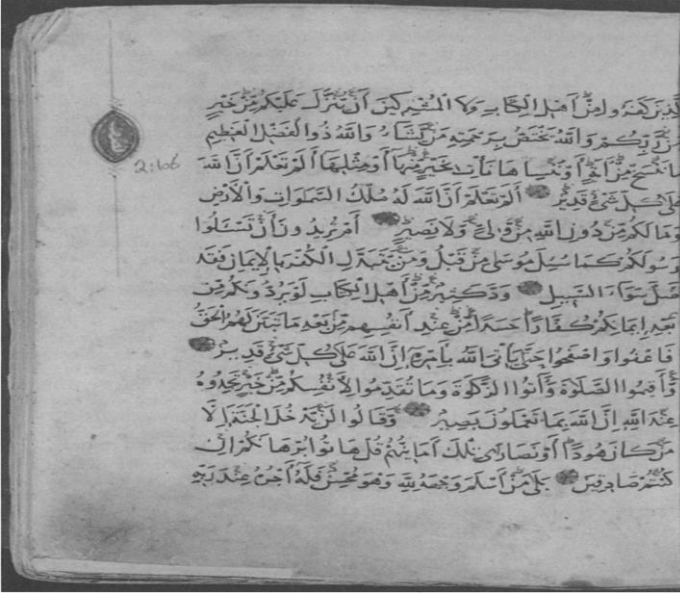 الذين كفروا من أهل الكتاب ولا المشركين أن ينزل عليكم من خير
من ربكم والله يختص برحمته من يشاء والله ذوا الفضل العظيم
ما ننسخ من آية أو ننساها نأت بخير منها أو مثلها ألم تعلم أن الله
2:106
على كل شيء قدير ألم تعلم أن الله له ملك السماوات والأرض
وما لكم من دون الله من ولي ولا نصير أم تريدون أن تسئلوا
رسولكم كما سئل موسى من قبل ومن يتبدل الكفر بالإيمان فقد
ضل سواء السبيل ود كثير من أهل الكتاب لو يردونكم من
بعد إيمانكم كفارا حسدا من عند أنفسهم من بعد ما تبين لهم الحق
فاعفوا واصفحوا حتى يأتي الله بأمره إن الله على كل شيء قدير
وأقيموا الصلاة وآتوا الزكوة وما تقدموا لأنفسكم من خير تجدوه
عند الله إن الله بما تعملون بصير وقالوا لن يدخل الجنة إلا
من كان هودا أو نصارى تلك أمانيهم قل هاتوا برهانكم إن
كنتم صادقين بلى من أسلم وجهه لله وهو محسن فله أجره عند ربه